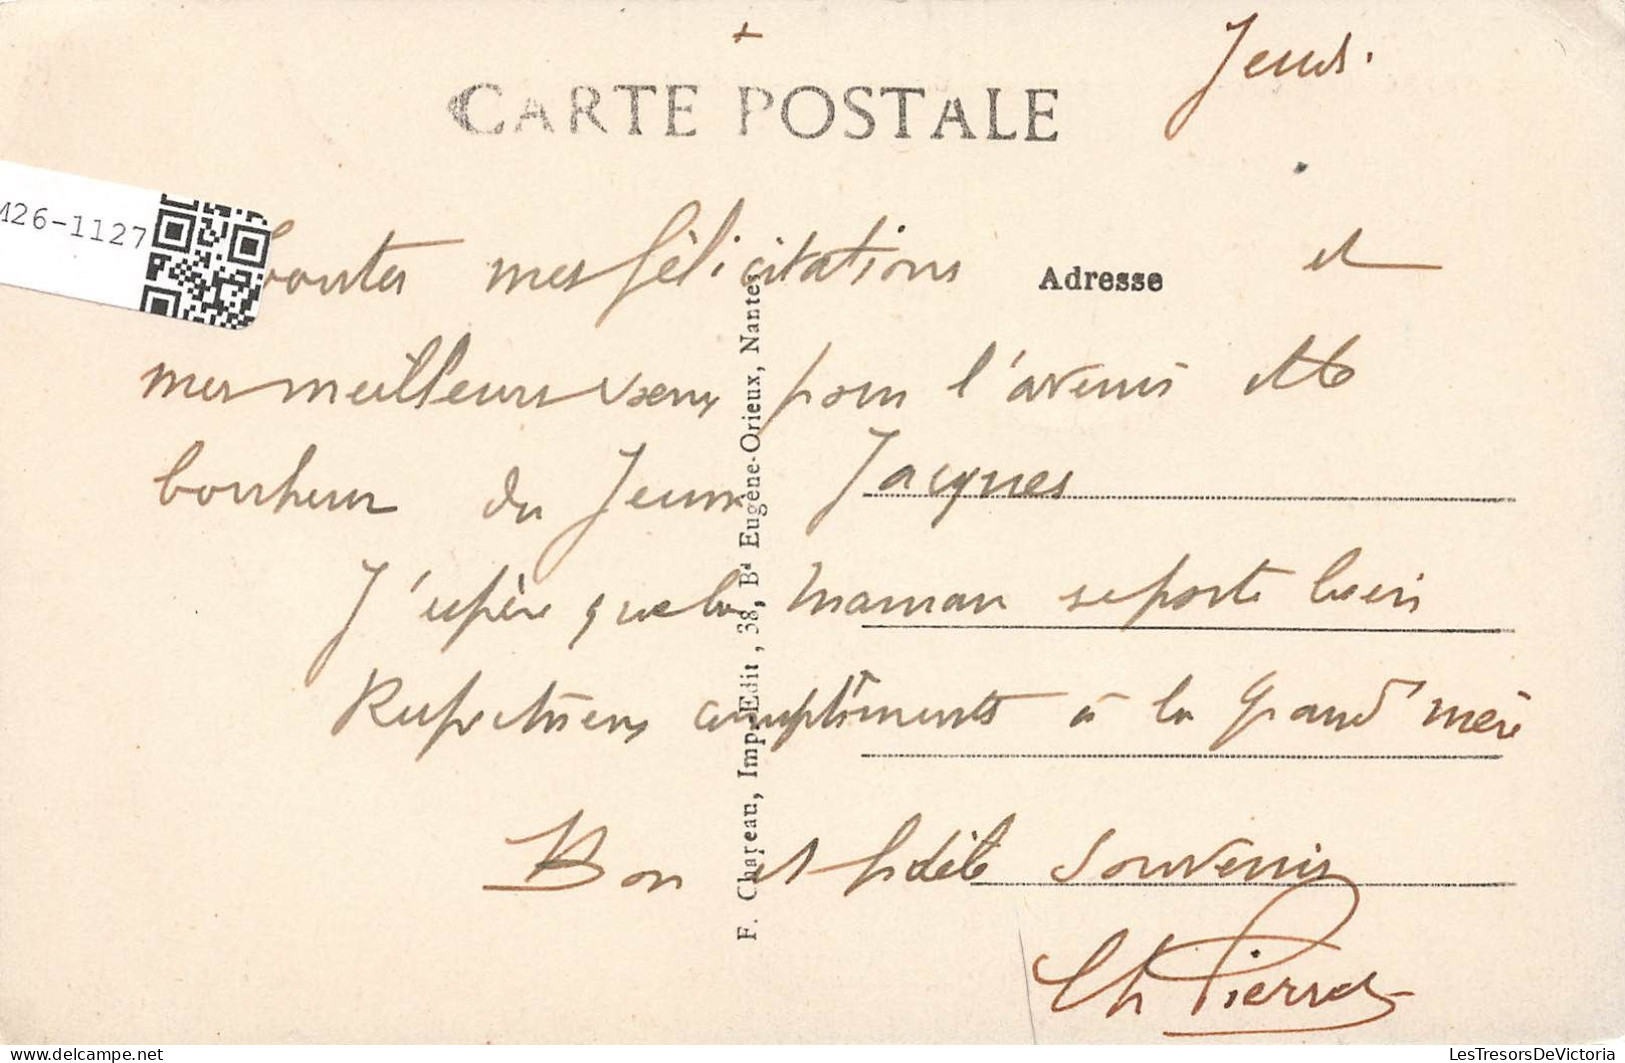 +
Jeudi.
CARTE POSTALE
M26-1127
Toutes mes félicitations et
Adresse
mes meilleurs vœux pour l'avenir et le
bonheur du Jeune Jacques
J'espère que la maman se porte bien
Respectueux compliments à la Grand'mère
Bon et fidèle souvenir
Ch Pierret
F. Chapeau, Imp. Edit, 38, Bd Eugène-Orieux, Nantes
LesTresorsDeVictoria